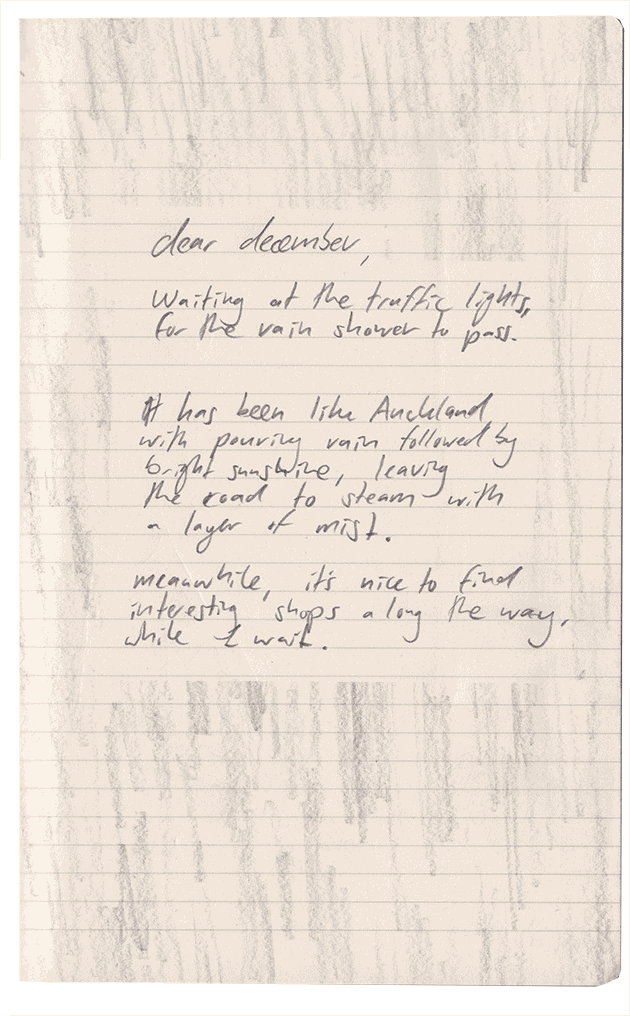 dear december,
Waiting at the traffic lights,
for the rain shower to pass.
It has been like Auckland
with pouring rain followed by
bright sunshine, leaving
the road to steam with
a layer of mist.
meanwhile, it's nice to find
interesting shops along the way,
while I wait.